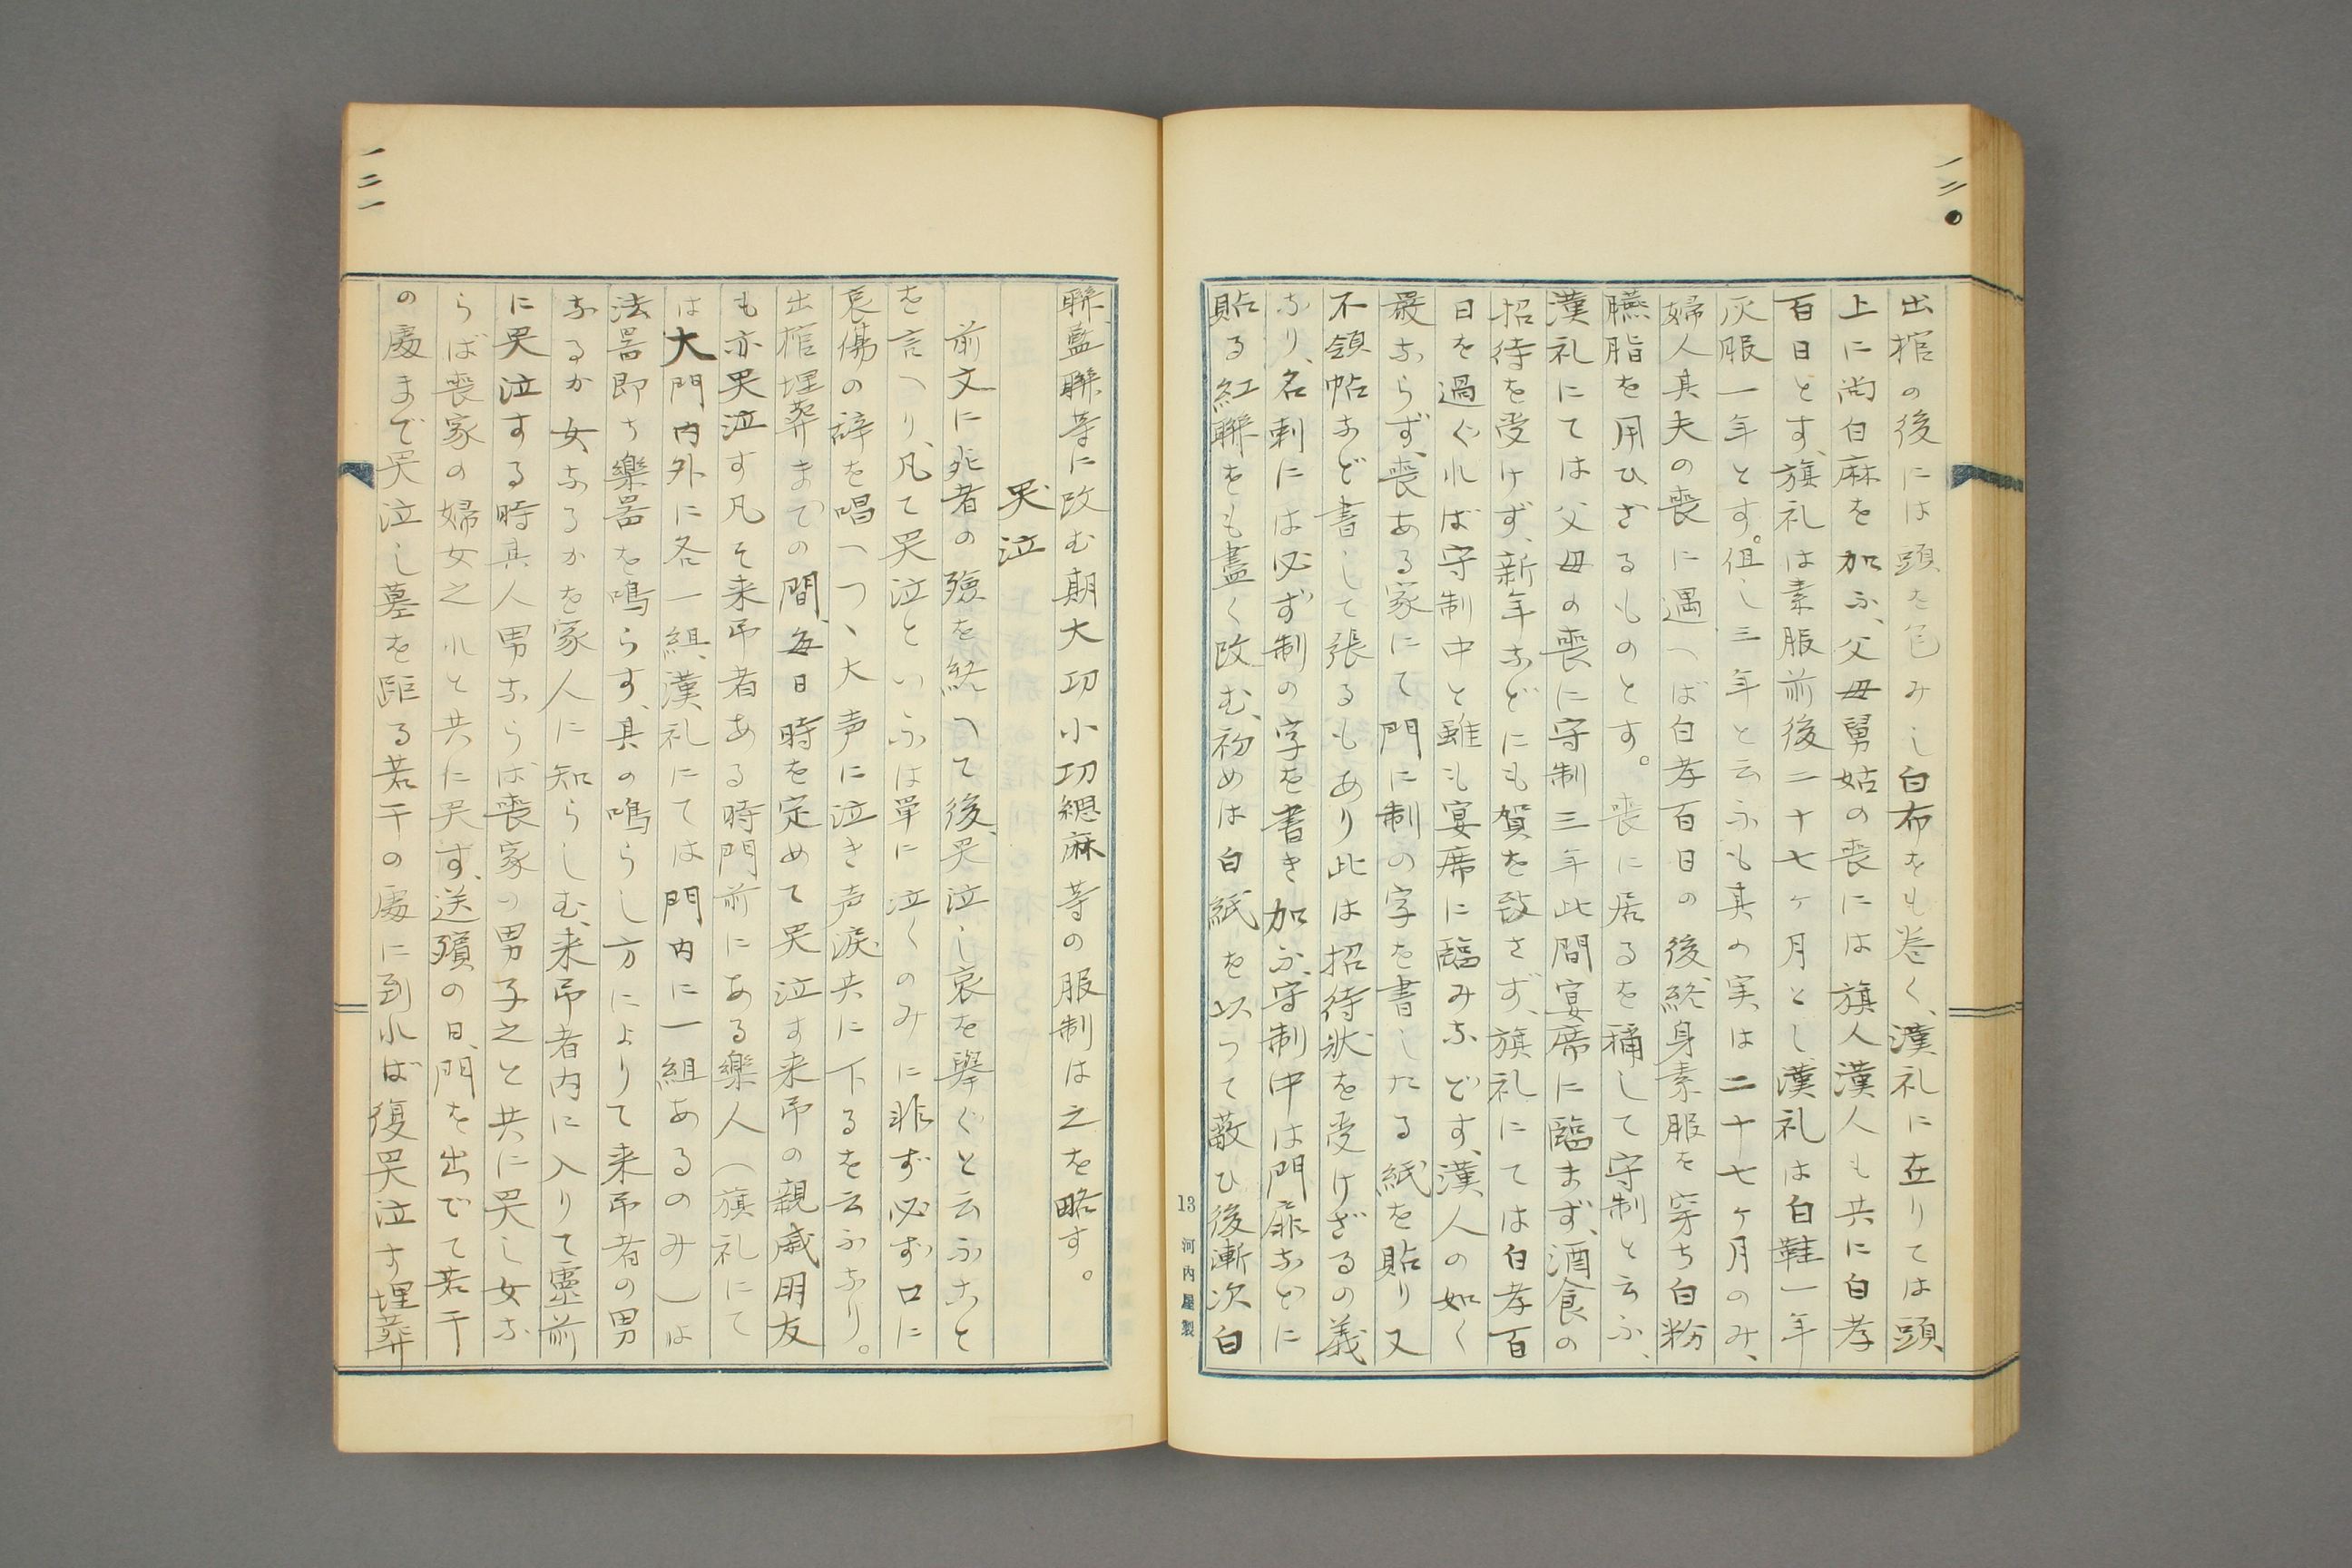 一二〇
出棺の後には頭を包みし白布をも巻く、漢礼に在りては頭
上に尚白麻を加ふ、父母舅姑の喪には旗人漢人も共に白孝
百日とす、旗礼は素服前後二十七ヶ月とし漢礼は白鞋一年
灰服一年とす。但し三年と云ふも其の実は二十七ヶ月のみ、
婦人其夫の喪に遇へば白孝百日の後、終身素服を穿ち白粉
臙脂を用ひざるものとす。喪に居るを稱して守制と云ふ、
漢礼にては父母の喪に守制三年此間宴席に臨まず、酒食の
招待を受けず、新年などにも賀を致さず、旗礼にては白孝百
日を過ぐれば守制中と雖も宴席に臨みなどす、漢人の如く
嚴ならず、喪ある家にて門に制の字を書したる紙を貼り又
不領帖など書して張るもあり此は招待状を受けざるの義
なり、名刺には必ず制の字を書き加ふ、守制中は門扉などに
貼る紅聯をも盡く改む、初めは白紙を以つて蔽ひ後漸次白
13 河内屋製
一二一
聯、藍聯等に改む期大功小功緦麻等の服制は之を略す。
哭泣
前文に死者の殮を終へて後、哭泣し哀を擧ぐと云ふこと
を言へり、凡て哭泣といふは單に泣くのみに非ず必ず口に
哀傷の辞を唱へつヽ大声に泣き声涙共に下るを云ふなり。
出棺埋葬までの間、毎日時を定めて哭泣す来弔の親戚朋友
も亦哭泣す凡そ来弔者ある時門前にある樂人（旗礼にて
は大門内外に各一組、漢礼にては門内に一組あるのみ）は
法器即ち樂器を鳴らす、其の鳴らし方によりて来弔者の男
なるか女なるかを家人に知らしむ、来弔者内に入りて靈前
に哭泣する時其人男ならば喪家の男子之と共に哭し女な
らば喪家の婦女之れと共に哭す、送殯の日、門を出でて若干
の處まで哭泣し墓を距る若干の處に到れば復哭泣す埋葬